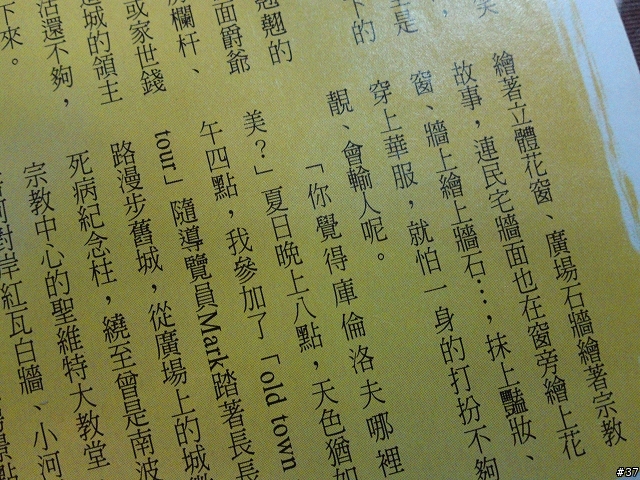 笑
是
下的
翹翹的
面爵爺
欄杆、
或家世錢
城的領主
還不夠，
下來。
繪著立體花窗、廣場石牆繪著宗教
故事，連民宅牆面也在窗旁繪上花
窗、牆上繪上牆石…，抹上豔妝、
穿上華服，就怕一身的打扮不夠
靚、會輸人呢。
「你覺得庫倫洛夫哪裡
美？」夏日晚上八點，天色猶如
午四點，我參加了「old town
tour」隨導覽員Mark踏著長長
路漫步舊城，從廣場上的城
死病紀念柱，繞至曾是南波
宗教中心的聖維特大教堂
河對岸紅瓦白牆、小河
#37